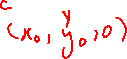 c y
(x₀, y₀, 0)